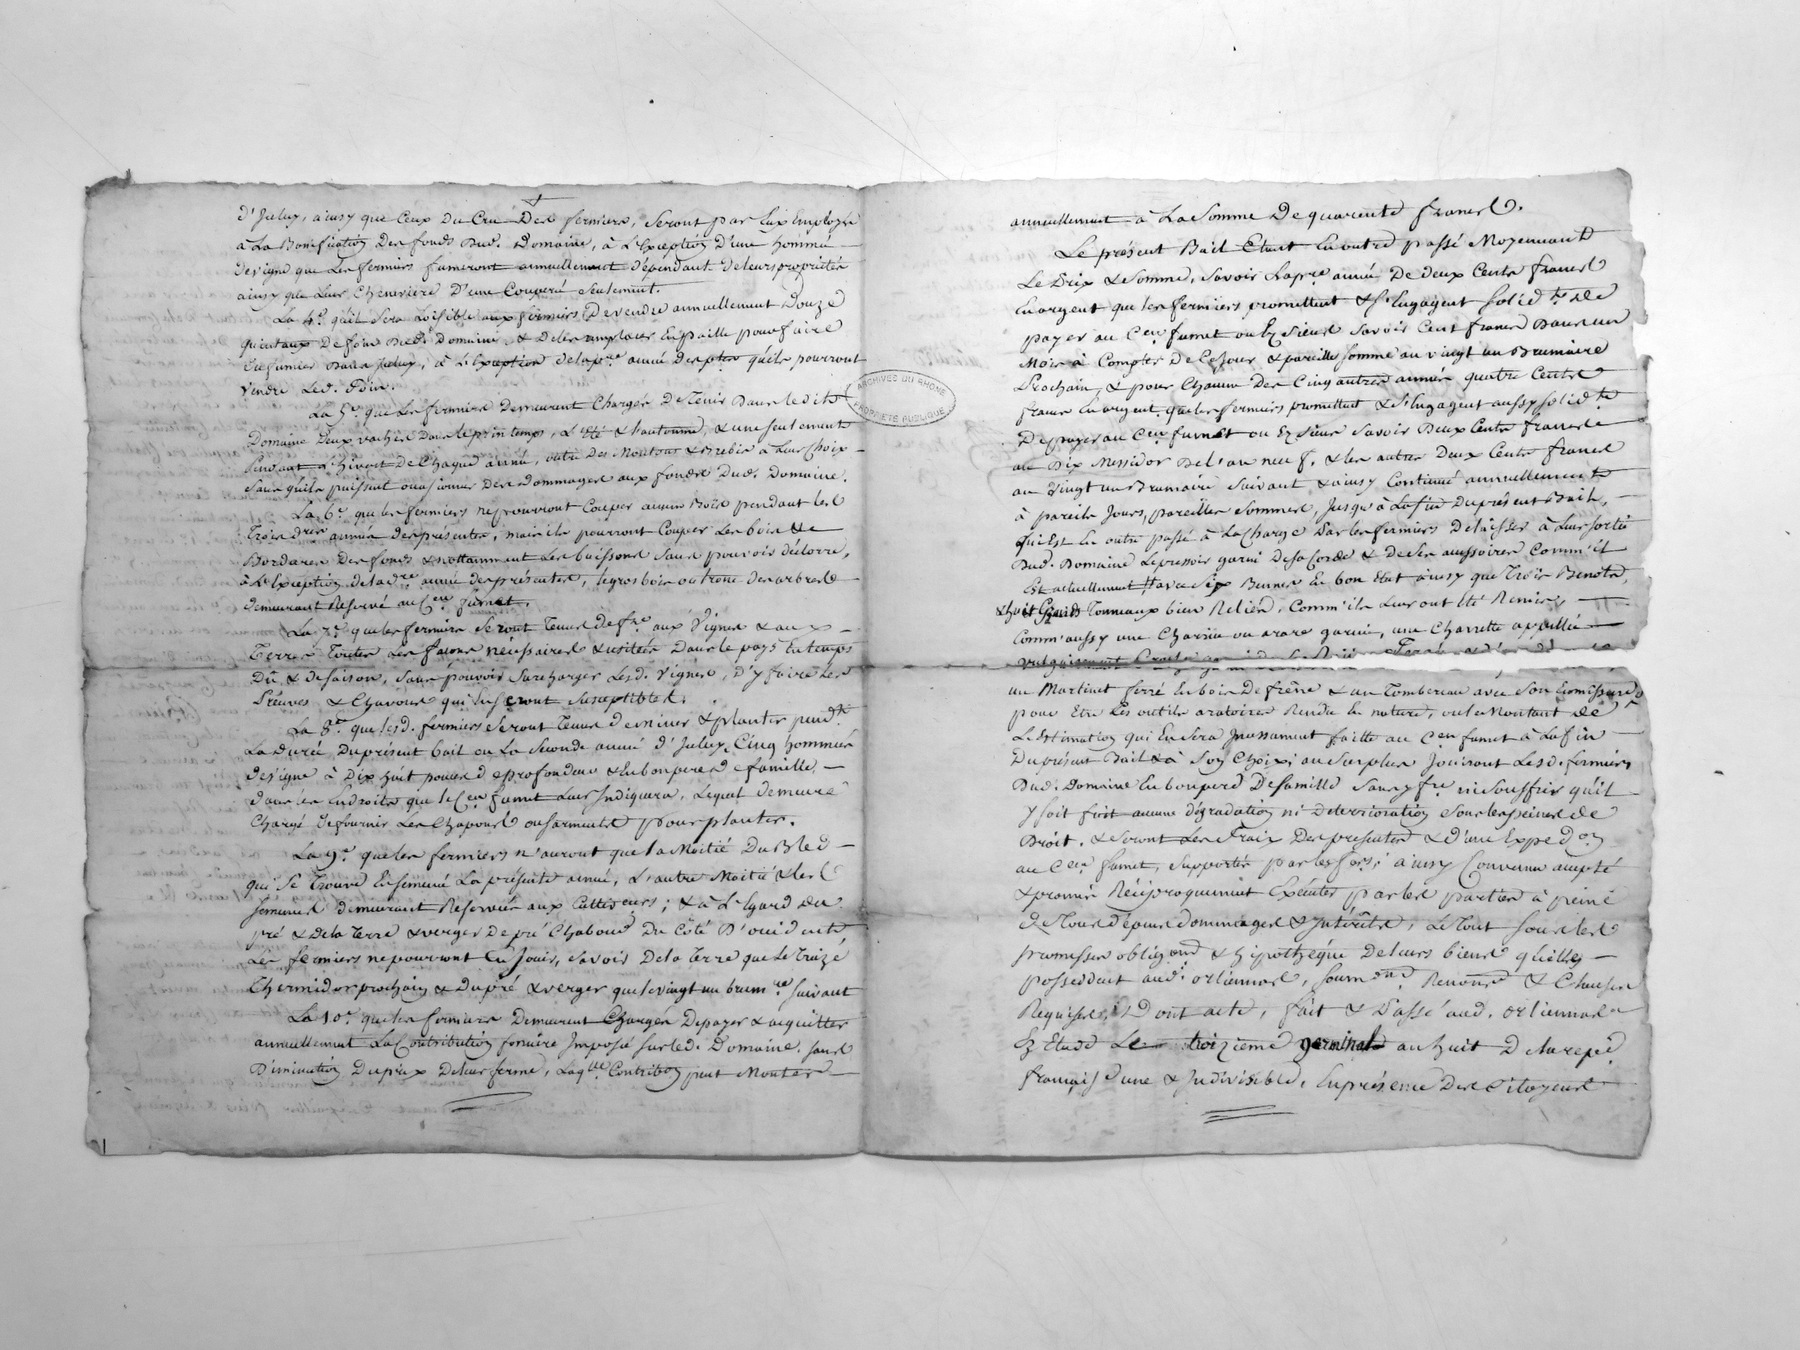 d'Juluy, ainsy que Ceux du Cru Des fermiers, Seront par Eux Employé
a La Bonification Des fonds Dud. Domaine, à L'exception D'une hommée
de vigne que Les fermiers fumeront annuellement dépendant de leurs propriétés
ainsy que Leur Cheneviere D'une Couperé Seulement.
La 4e. qu'il Sera Loisible aux fermiers De vendre annuellement Douze
quintaux De foin Dud. Domaine, & De les remplacer En paille pour faire
du fumier Dans Juluy, à L'exception de la pre. année qu'ils pourront
vendre Led. foin.
La 5e. que Les fermiers Demeurent Chargés De Tenir Dans ledit
Domaine Deux vaches Dans le printemps, L'été & Lautomne, & une Seulement
pendant L'hivert De Chaque année, outre Des Moutons & Brebis à Leur Choix
Sans qu'ils puissent ocasionner Des Dommages aux fonds Dud. Domaine.
La 6e. que les fermiers ne pourront Couper aucun Bois pendant les
Trois années des présentes, mais ils pourront Couper Les bois de
Bordures Des fonds & nottamment Les buissons Sans pouvoir déclorre,
à L'exception de la année des présentes, le gros bois ou tronc des arbres
demeurant Reservé au Cen. fumet.
La 7e. que les fermiers Seront Tenus de fre. aux Vignes & aux
Terres Toutes Les façons nécessaires & usitées Dans le pays En temps
Dû & de Saison, Sans pouvoir Surcharger Lesd. vignes, D'y faire Les
Preuves & Chavons qui En Seront Susceptibles.
La 8e. que lesd. fermiers Seront Tenus de miner & planter pendt.
La durée Du présent bail ou La Seconde année d'Juluy Cinq hommées
de vigne à Dix huit pouces de profondeur & En bon pere de famille,
dans Les Endroits que le Cen. fumet Leur Indiquera, Lequel demeure
Chargé de fournir Les Chapons ou Sarments pour planter.
La 9e. que les fermiers n'auront que la Moitié Du Bled
qui Se Trouve Ensemencé La présente année, L'autre Moitié & les
Semences demeurant Reservées aux Cultivateurs; & à L'egard du
pré & de la Terre & verger De pré Chaboud Du Côté D'occident
Les fermiers ne pourront En Jouir, Savoir De la Terre que Le Treize
Thermidor prochain & Du pré & verger que le vingt un brumre. Suivant
La 10e. que les fermiers Demeurent Chargés De payer & acquitter
annuellement La Contribution fonciere Imposée Sur led. Domaine. Sans
Diminution Du prix De leur ferme, Laqlle. Contribon peut Monter
annuellement à La Somme De quarente francs.
Le présent Bail Etant En outre passé Moyennant
Le Prix & Somme, Savoir La pre. année De deux Cents francs
En argent que les fermiers promettent & S'Engagent Solidt. de
payer au Cen. fumet ou Es Siens Savoir Cent francs Dans un
Mois à Compter De Ce Jour & pareille Somme au vingt un Brumaire
Prochain, & pour Chacune Des Cinq autres années quatre Cents
francs En argent que les fermiers promettent & S'Engagent aussy Solidt.
De payer au Cen. fumet ou Es Siens Savoir Deux Cents francs
au Dix Messidor De l'an neuf, & les autres Deux Cents francs
au Vingt un Brumaire Suivant & ainsy Continué annuellement
à pareils Jours, pareilles Sommes, Jusqu'à La fin Du présent Bail,
Qui Est En outre passé à La Charge Par les fermiers De laisser à Leur Sortie
Dud. Domaine Le pressoir garni De sa Corde & De Ses Comm'il
Est actuellement, avec Six Bennes En bon Etat ainsy que Trois Benots,
& huit Grands Tonneaux bien Reliés, Comm'ils Leur ont Eté Remis,
Comm'aussy une Charrue ou arare garnie, une Charrette appellée
vulgairement
un Martinet ferré En bois De frêne & un Tombereau avec Son
pour Etre Les outils aratoires Rendu En nature, ou Le Montant De
L'Estimation qui En Sera faitte au Cen. fumet à La fin
Du présent Bail & à Son Choix; au Surplus Jouiront Lesd. fermiers
Dud. Domaine En bon pere De famille Sans y fre. ni Souffrir qu'il
y soit fait aucune dégradation ni Deterrioration Sous les peines de
Droit, & Seront Les Fraix Des presentes & d'une Expedon.
au Cen. fumet, Supportés par les fers; ainsy Convenu accepté
& promis Réciproquement Exécuter par les parties à peine
De Tous dépens Dommages & Intérêts, Le Tout Sous les
promesses obligons & hipothéque De leurs biens qu'elles
possedent aud. orliennas, Renonce & Clauses
Requises, Dont acte, fait & Passé aud. orliennas
Es Etude Le treizieme germinal an huit De la repe.
française une & Indivisible, En présence Des Citoyens
ARCHIVES DU RHONE
PROPRIETE PUBLIQUE